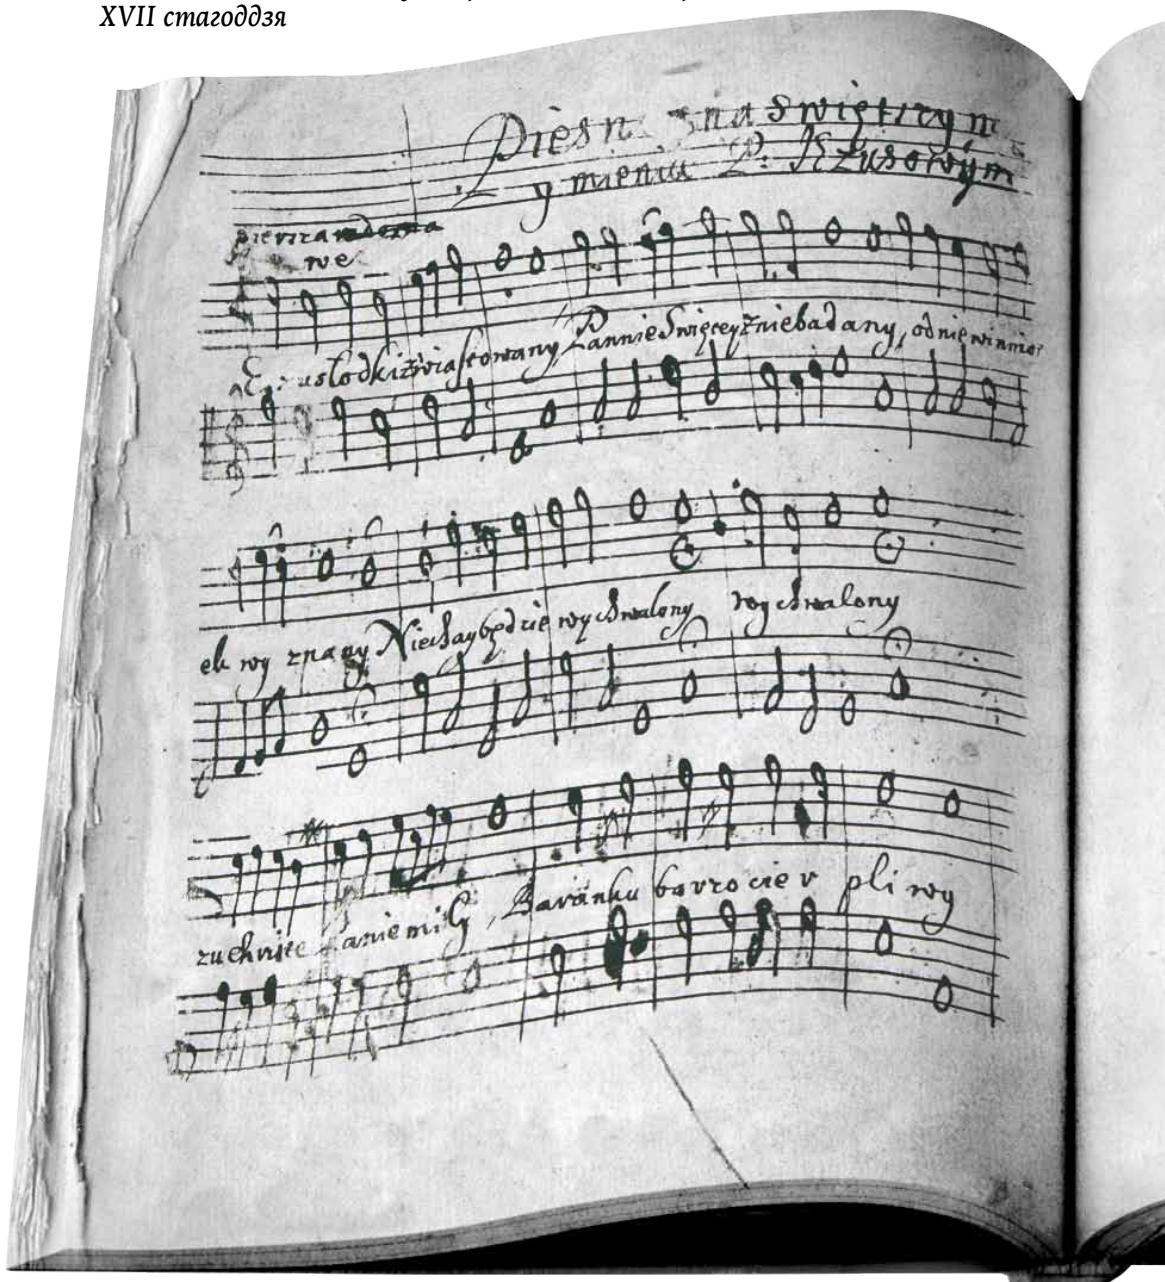 XVII стагоддзя
Piesn znaswiętrzym
ymieniu P: JEzusowym
piervza
we
Ezusslodkizwiastowany, PannieSwięteyzniebadany, odniewinnio
ek wy znany Niechaybędzie wychwalony wychwalony
zuchryste Paniemiły, Baranku barzo cier pliwy